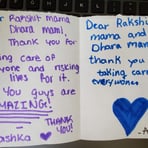 Dear Rakshit mama
Dhara mami,
Thank you for
ing care of
yone and risking
lives for it.
You guys are
AMAZING!
THANK
YOU!
ashka
Dear Rakshi
mama and
Dhara mam
thank you
taking care
everyones